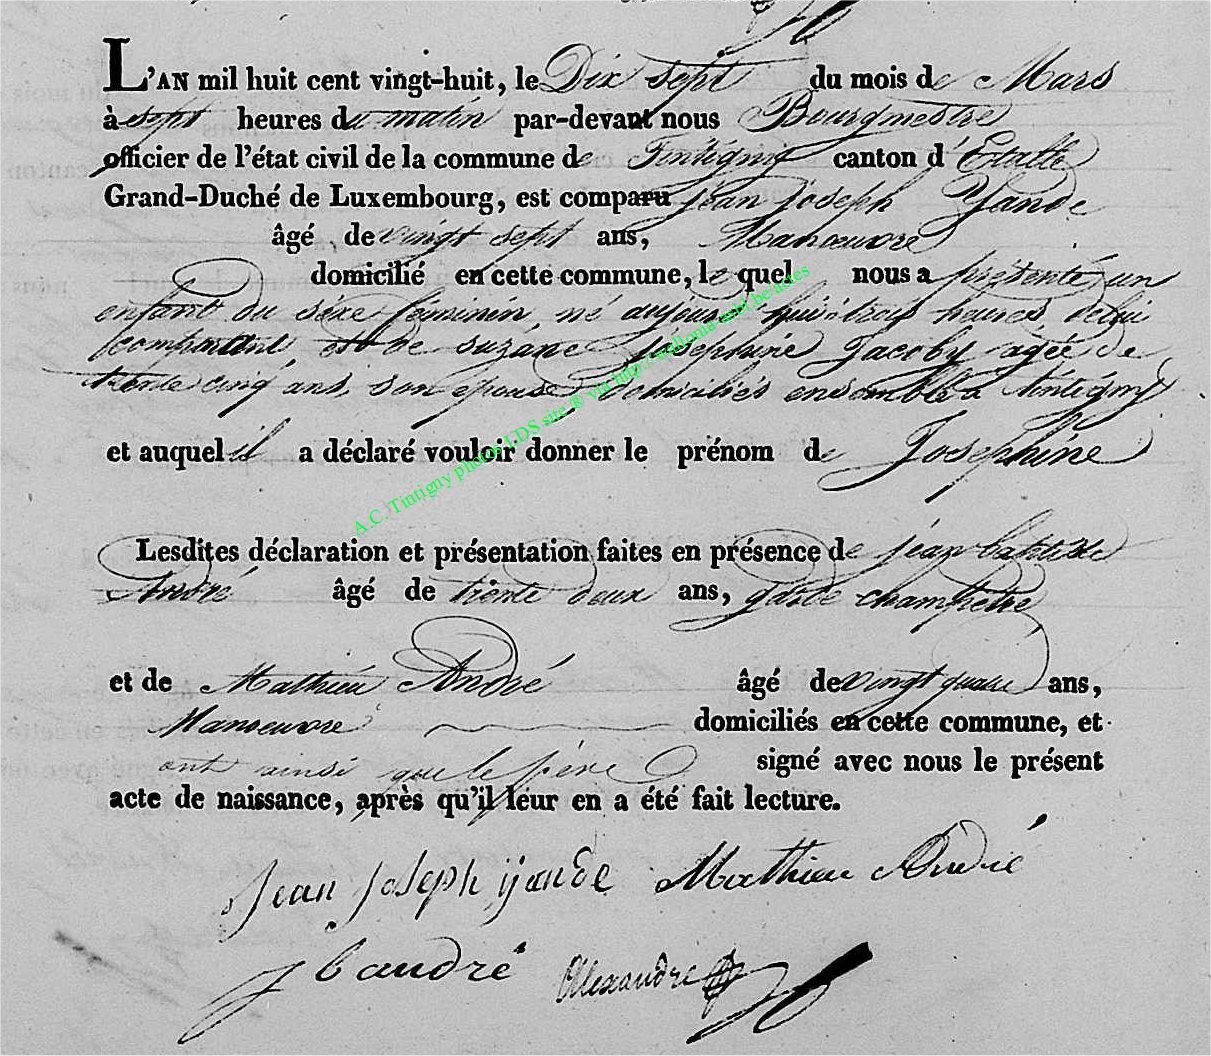 L'AN mil huit cent vingt-huit, le Dix sept du mois de Mars
à sept heures du matin par-devant nous Bourgmestre
officier de l'état civil de la commune de Tintigny canton d'Etalle
Grand-Duché de Luxembourg, est comparu jéan joseph Yande
âgé de vingt sept ans, Manoeuvre
domicilié en cette commune, le quel nous a présenté un
enfant du séxe féminin, né aujourd'hui à trois heures de lui
comparant, et de suzane Joséphine Jacoby agée de
trente cinq ans, son épouse, domiciliés ensemble à tintigny
et auquel il a déclaré vouloir donner le prénom de Joséphine
Lesdites déclaration et présentation faites en présence de jéan baptiste
André âgé de trente deux ans, garde champêtre
et de Mathieu André âgé de vingt quatre ans,
Manoeuvre domiciliés en cette commune, et
ont ainsi que le pére signé avec nous le présent
acte de naissance, après qu'il leur en a été fait lecture.
Jean Joseph ÿande Mathieu André
J b andré Alexandre
A.C. Tintigny photos LDS site ® via http://wallonia-asbl.be/actes